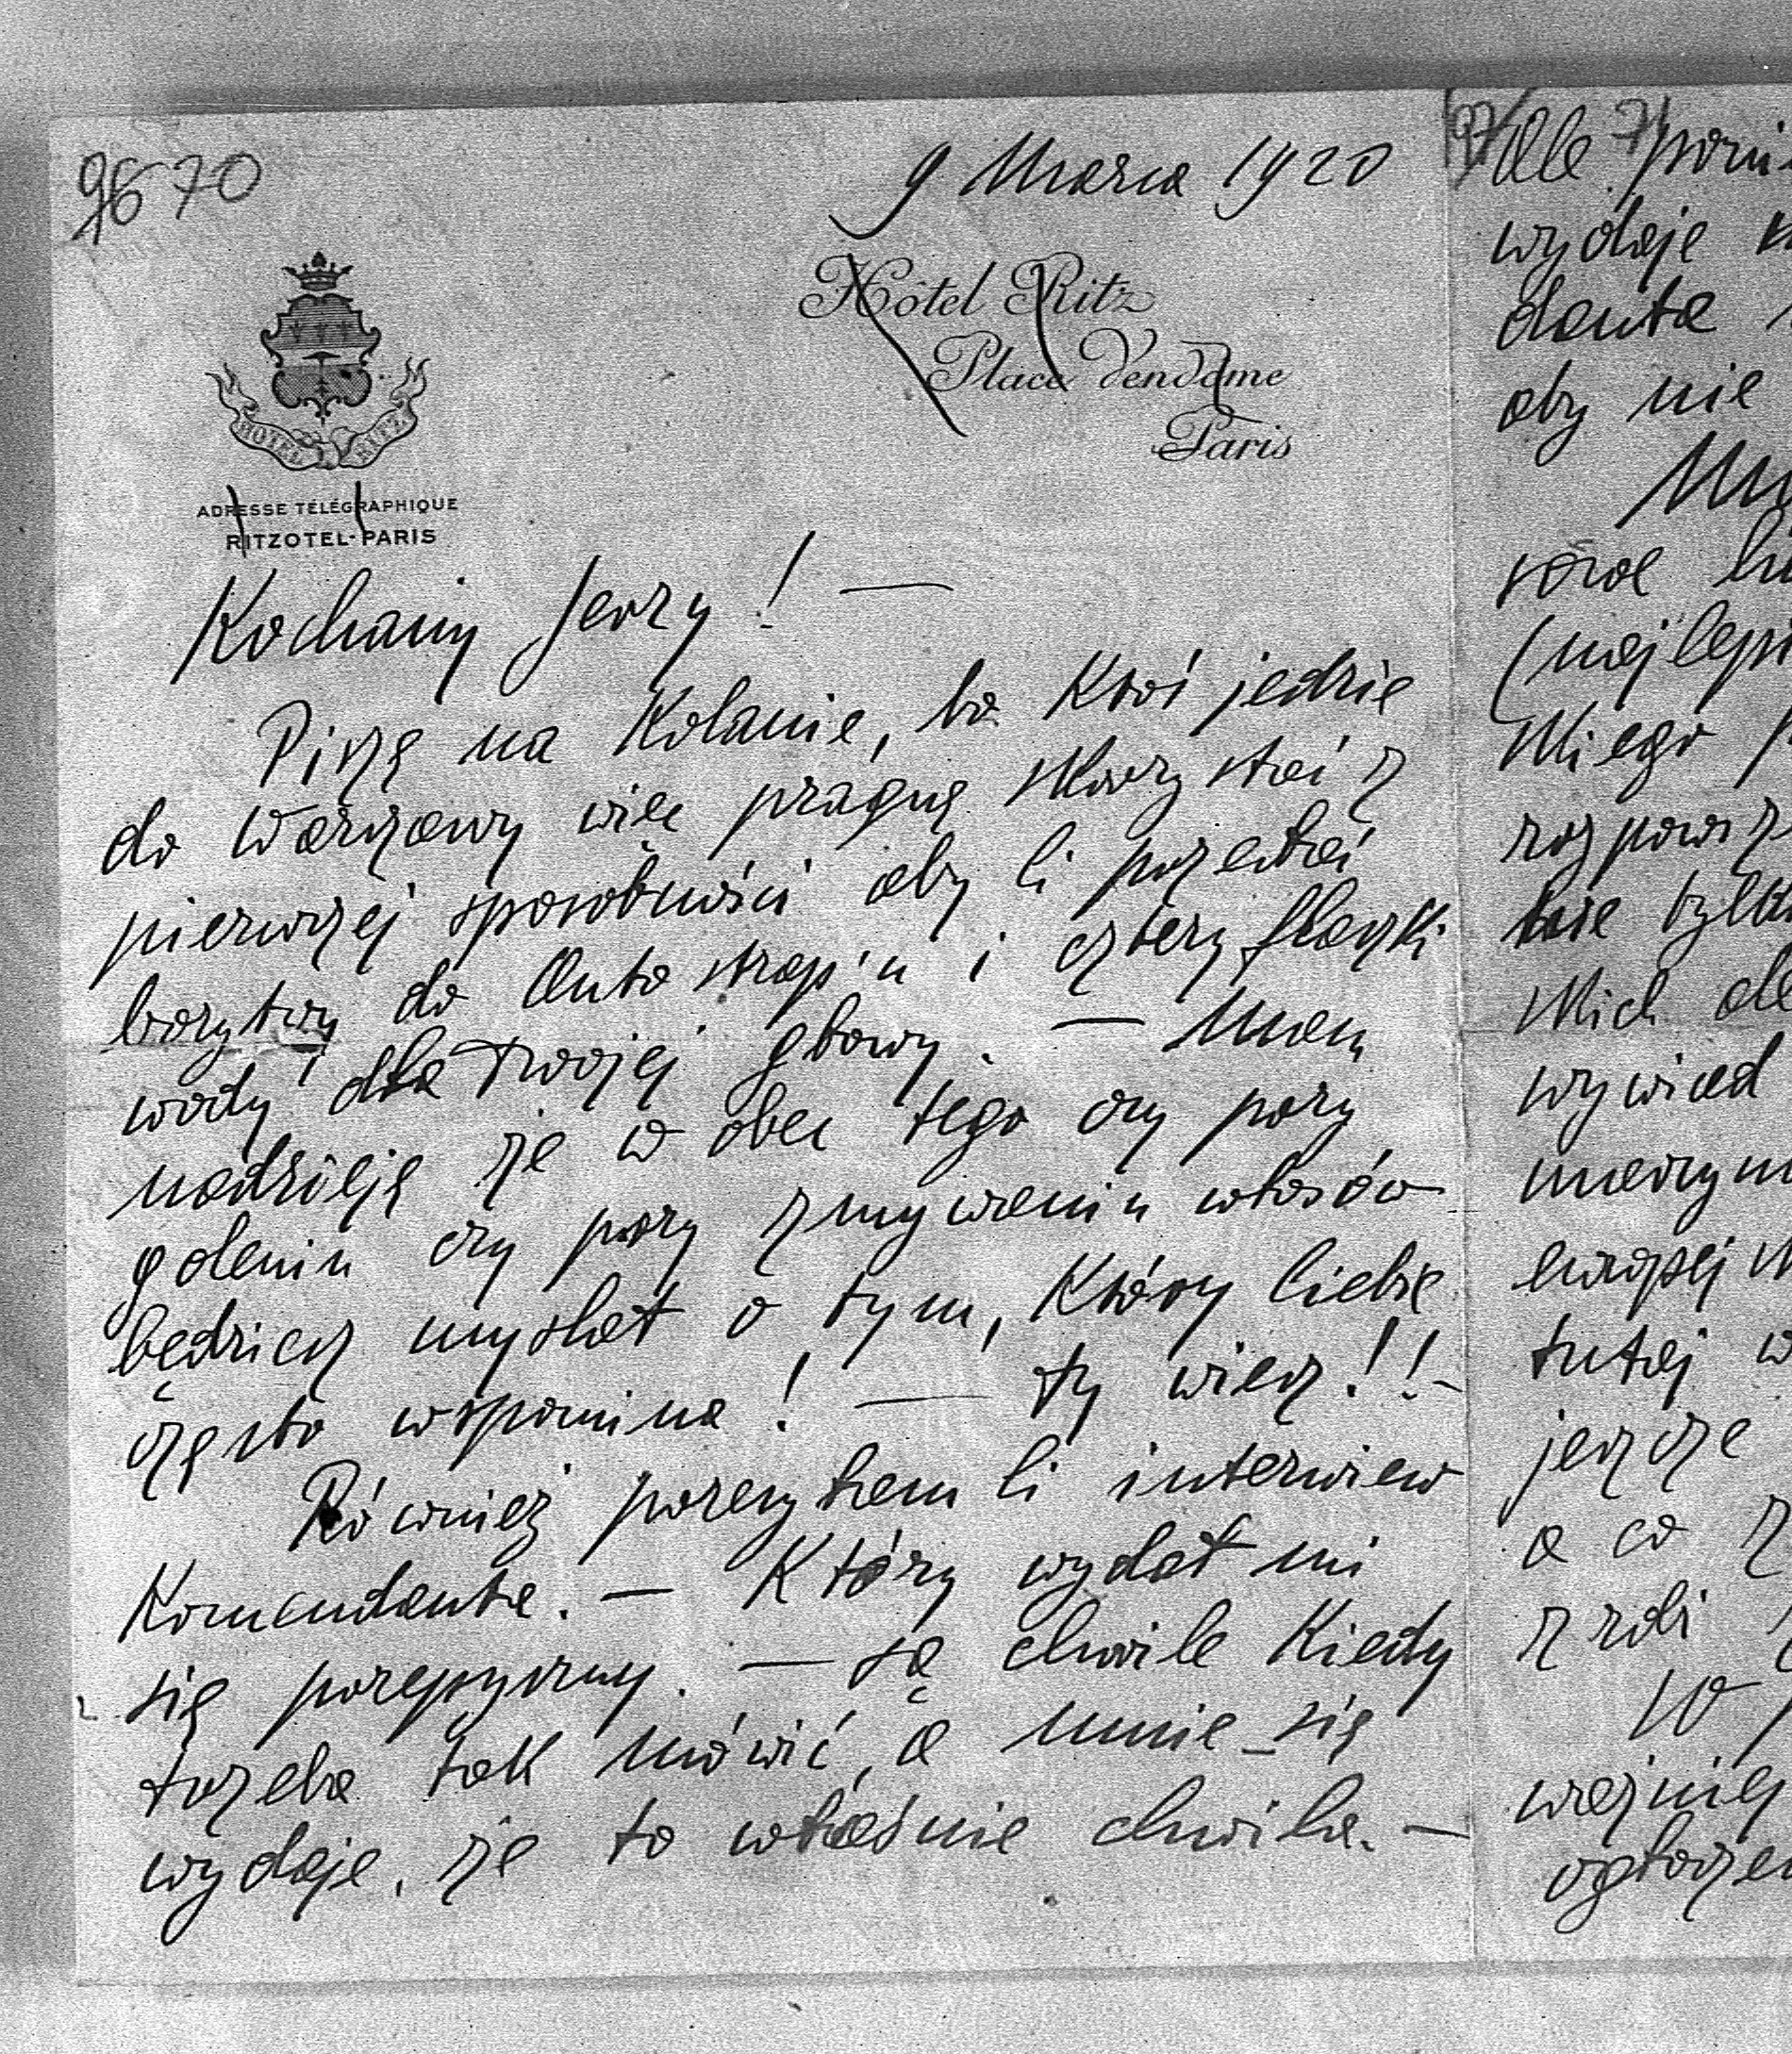 96 70
9 Marca 1920
Hôtel Ritz
Place Vendôme
Paris
HOTEL RITZ
ADRESSE TÉLÉGRAPHIQUE
RITZOTEL-PARIS
Kochany Jerzy! —
Piszę na kolanie, bo ktoś jedzie
do Warszawy więc pragnę skorzystać z
pierwszej sposobności aby Ci przesłać
brzytwy do Autostrop'u i cztery flaszki
wody dla Twojej głowy. — Mam
nadzieję że w obec tego czy przy
goleniu czy przy zmywaniu włosów
będziesz myślał o tym, który Ciebie
często wspomina! — Ty wiesz!! -
Również przesyłam Ci interwiew
Komendanta. — Który wydał mi
się przepyszny. — Są chwile kiedy
trzeba tak mówić, a mnie się
wydaje, że to właśnie chwila. —
97 71
Ale
wydaje
danta
aby nie
(najlepi
skiego
rozpowsz
tylk
skich
wywiad
tutaj w
jeszcze
a co z
zrobi
W